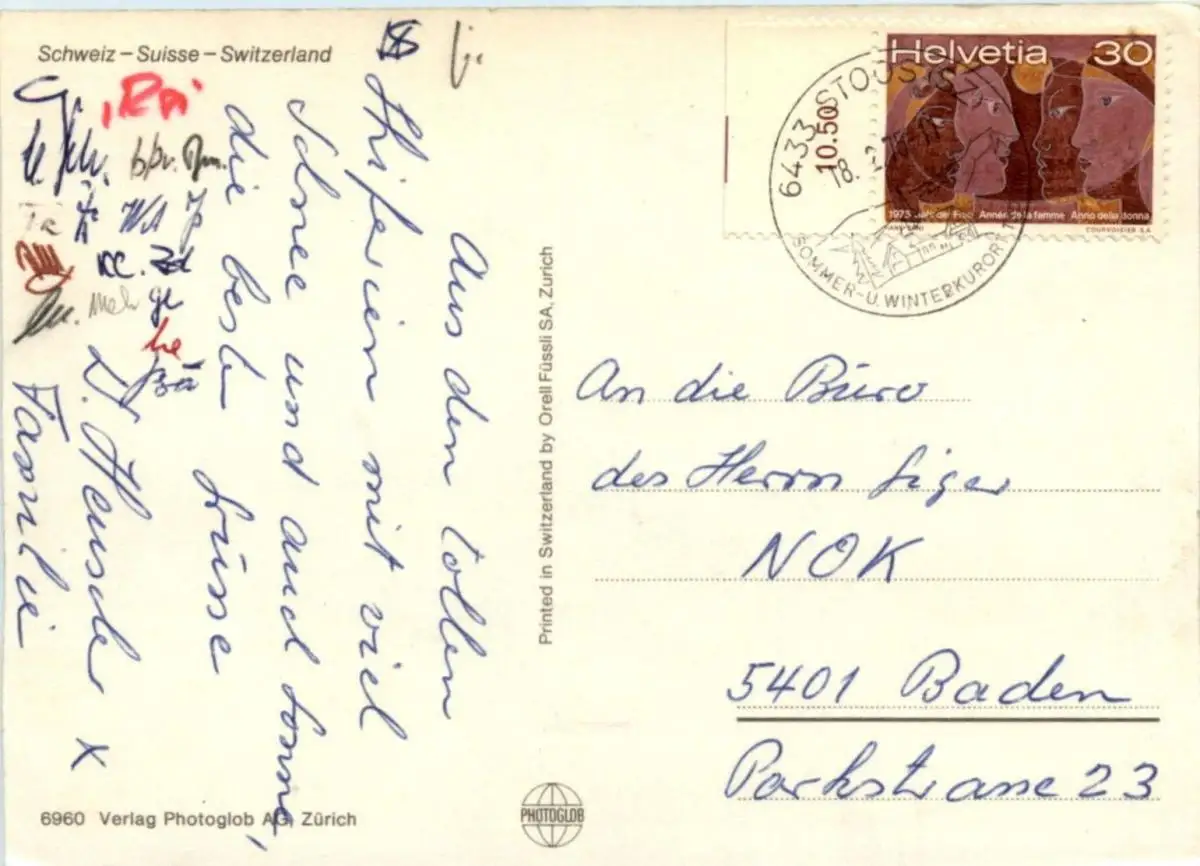 Schweiz – Suisse – Switzerland
Helvetia 30
1975 Jahr der Frau Année de la femme Anno della donna
COURVOISIER S.A.
10.50
6433 STOOS SZ
18.
SOMMER- U. WINTERKURORT
Aus dem tollen
Skiferien mit viel
Schnee und auch Sonne,
die besten
Grüsse
Familie
bbr.
Mel
ge
he
Bä
An die Büro
des Herrn Giger
NOK
5401 Baden
Parkstrasse 23
Printed in Switzerland by Orell Füssli SA, Zürich
6960 Verlag Photoglob AG, Zürich
PHOTOGLOB